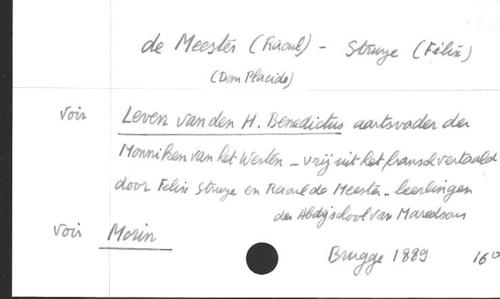 de Meester (Raoul) - Struye (Félix)
(Dom Placide)
voir Leven van den H. Benedictus aartsvader der
Monniken van het Westen - vrij uit het fransch vertaald
door Felix Struye en Raoul de Meester - leerlingen
der Abdijschool van Maredsous
voir Morin
Brugge 1889 16°